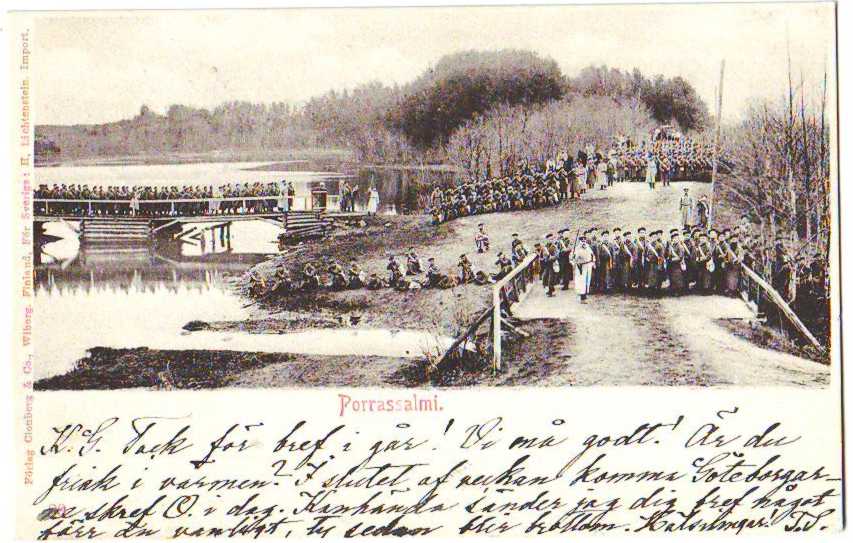 Förlag Clouberg & Co., Wiborg. Finland, För Sverige: H. Lichtenstein. Import.
Porrassalmi.
K. G. Tack för bref i går! Vi må godt! Är du
frisk i värmen? I slutet af veckan komma Göteborgar-
ne skref O. i dag. Kanhända sänder jag dig bref något
förr än vanligt, ty sedan blir bråttom. Hälsningar. T. S.